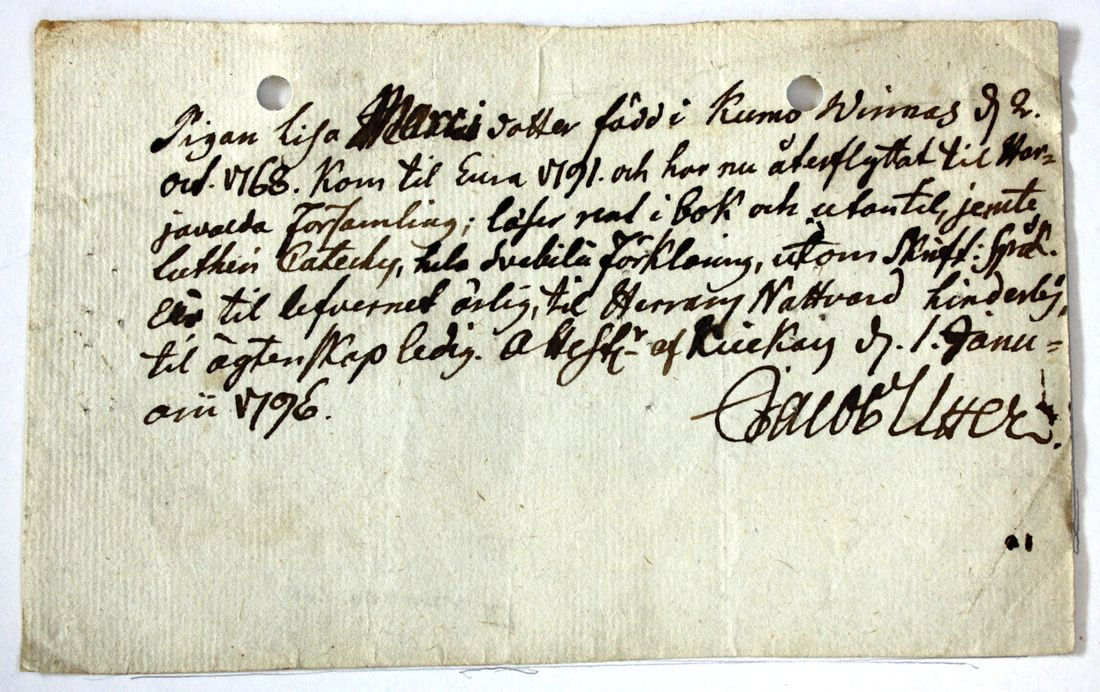 Pigan Lisa Mattsdotter född i Kumo Winnas d 2.
oct. 1768. Kom til Eura 1791. och har nu återflyttat til Har-
javalda Församling; läser rent i bok och utantil, jemte
Lutheri Catechs, hela Svebilii Förklaring, utom Skrift: Språk.
Är til lefvernet ärlig, til Herrans Nattvard hinderlös,
til ägtenskap ledig. Attest:r af Kiukais d. 1. Janu-
arii 1796.
Jacob Utter.